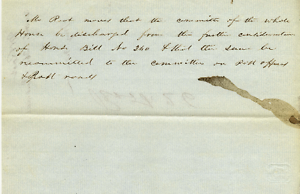 Mr Post moves that the committee of the whole
House be discharged from the further consideration
of House Bill No 260 & that the same be
recommitted to the committee on Post offices
& Post roads